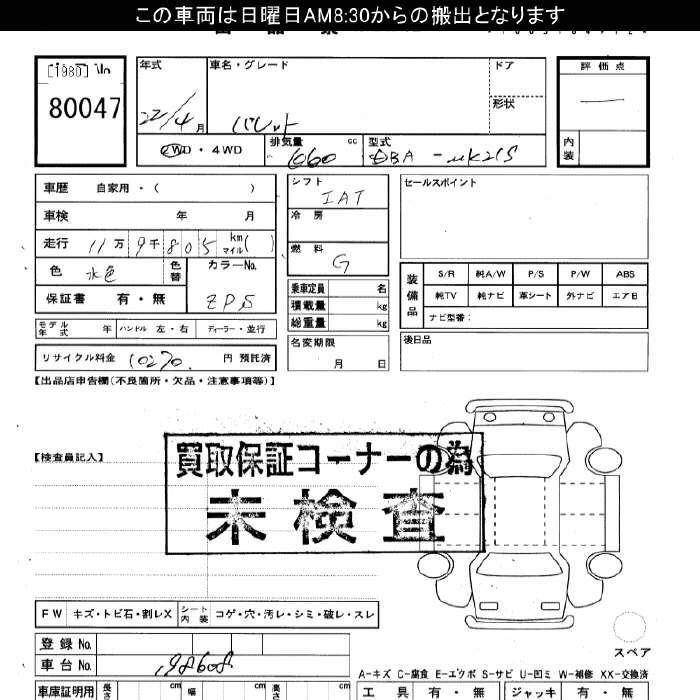 この車両は日曜日AM8:30からの搬出となります
80047
年式 22/4月
車名・グレード パレット
ドア
形状
評価点
内装
2WD・4WD
排気量 660 cc
型式 DBA-MK21S
車歴 自家用・( )
車検 年 月
走行 11万9千805 km マイル( )
色 水色
色替
カラーNo. ZP5
保証書 有・無
モデル年式 年 ハンドル 左・右 ディーラー・並行
リサイクル料金 10270 円 預託済
シフト IAT
冷房
燃料 G
乗車定員 名
積載量 kg
総重量 kg
名変期限
月 日
セールスポイント
装備品
S/R 純A/W P/S P/W ABS
純TV 純ナビ 革シート 外ナビ エアB
ナビ型番:
後日品
【出品店申告欄(不良箇所・欠品・注意事項等)】
【検査員記入】
買取保証コーナーの為
未検査
FW キズ・トビ石・割レX シート内装 コゲ・穴・汚レ・シミ・破レ・スレ
スペア
登録No.
車台No. 198608
A-キズ C-腐食 E-エクボ S-サビ U-凹ミ W-補修 XX-交換済
車庫証明用 長さ cm 幅 cm 高さ cm
工具 有・無 ジャッキ 有・無